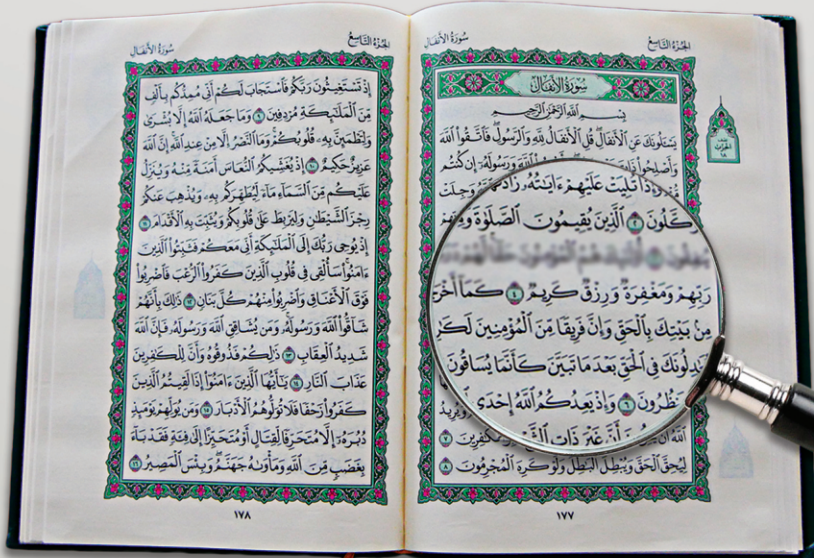 الجزء التاسع
سورة الأنفال
سُورَةُ الأَنفَالِ
بِسْمِ اللَّهِ الرَّحْمَٰنِ الرَّحِيمِ
يَسْـَٔلُونَكَ عَنِ ٱلْأَنفَالِ قُلِ ٱلْأَنفَالُ لِلَّهِ وَٱلرَّسُولِ فَٱتَّقُوا۟ ٱللَّهَ
وَأَصْلِحُوا۟ ٱللَّهَ وَرَسُولَهُۥٓ إِن كُنتُم
إِذَا تُلِيَتْ عَلَيْهِمْ ءَايَٰتُهُۥ زَادَتْهُمْ وَجِلَتْ
كَّلُونَ ٢ ٱلَّذِينَ يُقِيمُونَ ٱلصَّلَوٰةَ
رَبِّهِمْ وَمَغْفِرَةٌ وَرِزْقٌ كَرِيمٌ ٤ كَمَآ أَخْرَ
مِنۢ بَيْتِكَ بِٱلْحَقِّ وَإِنَّ فَرِيقًا مِّنَ ٱلْمُؤْمِنِينَ لَكَٰرِ
دِلُونَكَ فِى ٱلْحَقِّ بَعْدَ مَا تَبَيَّنَ كَأَنَّمَا يُسَاقُونَ
نظُرُونَ ٦ وَإِذْ يَعِدُكُمُ ٱللَّهُ إِحْدَى
ٱللَّهُ أَنَّ غَيْرَ ذَاتِ ٱلْكَٰفِرِينَ ٧
لِيُحِقَّ ٱلْحَقَّ وَيُبْطِلَ ٱلْبَٰطِلَ وَلَوْ كَرِهَ ٱلْمُجْرِمُونَ ٨
١٧٧
الجزء التاسع
سورة الأنفال
إِذْ تَسْتَغِيثُونَ رَبَّكُمْ فَٱسْتَجَابَ لَكُمْ أَنِّى مُمِدُّكُم بِأَلْفٍ
مِّنَ ٱلْمَلَٰٓئِكَةِ مُرْدِفِينَ ٩ وَمَا جَعَلَهُ ٱللَّهُ إِلَّا بُشْرَىٰ
وَلِتَطْمَئِنَّ بِهِۦ قُلُوبُكُمْ وَمَا ٱلنَّصْرُ إِلَّا مِنْ عِندِ ٱللَّهِ إِنَّ ٱللَّهَ
عَزِيزٌ حَكِيمٌ ١٠ إِذْ يُغَشِّيكُمُ ٱلنُّعَاسَ أَمَنَةً مِّنْهُ وَيُنَزِّلُ
عَلَيْكُم مِّنَ ٱلسَّمَآءِ مَآءً لِّيُطَهِّرَكُم بِهِۦ وَيُذْهِبَ عَنكُمْ
رِجْزَ ٱلشَّيْطَٰنِ وَلِيَرْبِطَ عَلَىٰ قُلُوبِكُمْ وَيُثَبِّتَ بِهِ ٱلْأَقْدَامَ ١١
إِذْ يُوحِى رَبُّكَ إِلَى ٱلْمَلَٰٓئِكَةِ أَنِّى مَعَكُمْ فَثَبِّتُوا۟ ٱلَّذِينَ
ءَامَنُوا۟ سَأُلْقِى فِى قُلُوبِ ٱلَّذِينَ كَفَرُوا۟ ٱلرُّعْبَ فَٱضْرِبُوا۟
فَوْقَ ٱلْأَعْنَاقِ وَٱضْرِبُوا۟ مِنْهُمْ كُلَّ بَنَانٍ ١٢ ذَٰلِكَ بِأَنَّهُمْ
شَآقُّوا۟ ٱللَّهَ وَرَسُولَهُۥ وَمَن يُشَاقِقِ ٱللَّهَ وَرَسُولَهُۥ فَإِنَّ ٱللَّهَ
شَدِيدُ ٱلْعِقَابِ ١٣ ذَٰلِكُمْ فَذُوقُوهُ وَأَنَّ لِلْكَٰفِرِينَ
عَذَابَ ٱلنَّارِ ١٤ يَٰٓأَيُّهَا ٱلَّذِينَ ءَامَنُوٓا۟ إِذَا لَقِيتُمُ ٱلَّذِينَ
كَفَرُوا۟ زَحْفًا فَلَا تُوَلُّوهُمُ ٱلْأَدْبَارَ ١٥ وَمَن يُوَلِّهِمْ يَوْمَئِذٍ
دُبُرَهُۥٓ إِلَّا مُتَحَرِّفًا لِّقِتَالٍ أَوْ مُتَحَيِّزًا إِلَىٰ فِئَةٍ فَقَدْ بَآءَ
بِغَضَبٍ مِّنَ ٱللَّهِ وَمَأْوَىٰهُ جَهَنَّمُ وَبِئْسَ ٱلْمَصِيرُ ١٦
١٧٨